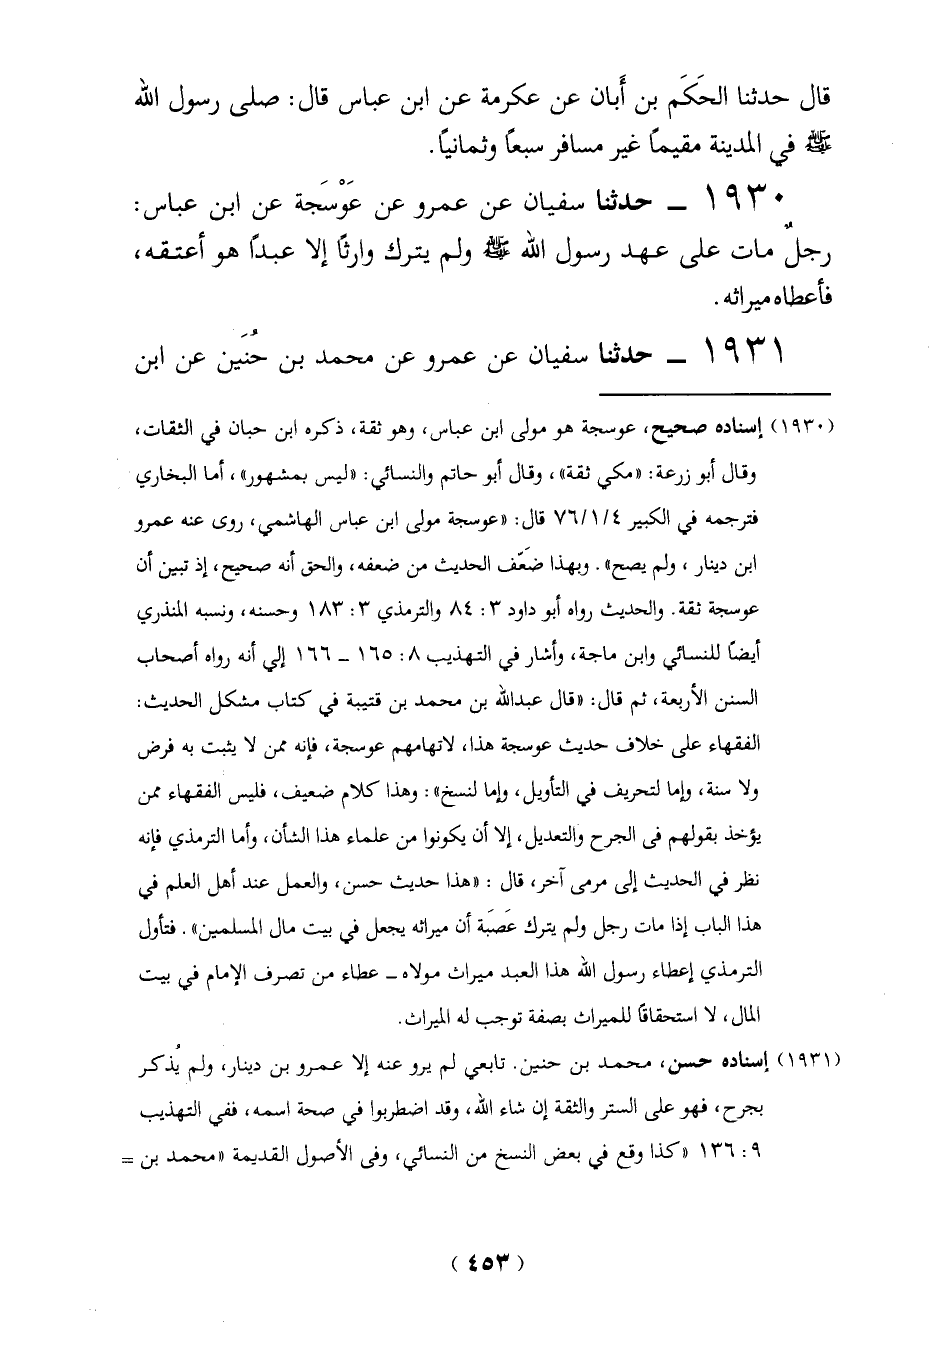 قال حدثنا الحَكَم بن أَبان عن عكرمة عن ابن عباس قال: صلى رسول الله
ﷺ في المدينة مقيماً غير مسافر سبعاً وثمانياً.
١٩٣٠ ـ حدثنا سفيان عن عمرو عن عَوْسَجة عن ابن عباس:
رجلٌ مات على عهد رسول الله ﷺ ولم يترك وارثاً إلا عبداً هو أعتقه،
فأعطاه ميراثه.
١٩٣١ ـ حدثنا سفيان عن عمرو عن محمد بن حُنَين عن ابن
(١٩٣٠) إسناده صحيح، عوسجة هو مولى ابن عباس، وهو ثقة، ذكره ابن حبان في الثقات،
وقال أبو زرعة: «مكي ثقة»، وقال أبو حاتم والنسائي: «ليس بمشهور»، أما البخاري
فترجمه في الكبير ٧٦/١/٤ قال: «عوسجة مولى ابن عباس الهاشمي، روى عنه عمرو
ابن دينار، ولم يصح». وبهذا ضعَّف الحديث من ضعفه، والحق أنه صحيح، إذ تبين أن
عوسجة ثقة. والحديث رواه أبو داود ٣: ٨٤ والترمذي ٣: ١٨٣ وحسنه، ونسبه المنذري
أيضاً للنسائي وابن ماجة، وأشار في التهذيب ٨: ١٦٥ ـ ١٦٦ إلي أنه رواه أصحاب
السنن الأربعة، ثم قال: «قال عبدالله بن محمد بن قتيبة في كتاب مشكل الحديث:
الفقهاء على خلاف حديث عوسجة هذا، لاتهامهم عوسجة، فإنه ممن لا يثبت به فرض
ولا سنة، وإما لتحريف في التأويل، وإما لنسخ»: وهذا كلام ضعيف، فليس الفقهاء ممن
يؤخذ بقولهم فى الجرح والتعديل، إلا أن يكونوا من علماء هذا الشأن، وأما الترمذي فإنه
نظر في الحديث إلى مرمى آخر، قال: «هذا حديث حسن، والعمل عند أهل العلم في
هذا الباب إذا مات رجل ولم يترك عَصَبَة أن ميراثه يجعل في بيت مال المسلمين». فتأول
الترمذي إعطاء رسول الله هذا العبد ميراث مولاه ـ عطاء من تصرف الإمام في بيت
المال، لا استحقاقاً للميراث بصفة توجب له الميراث.
(١٩٣١) إسناده حسن، محمد بن حنين. تابعي لم يرو عنه إلا عمرو بن دينار، ولم يُذكر
بجرح، فهو على الستر والثقة إن شاء الله، وقد اضطربوا في صحة اسمه، ففي التهذيب
٩: ١٣٦ «كذا وقع في بعض النسخ من النسائي، وفى الأصول القديمة «محمد بن =
(٤٥٣)